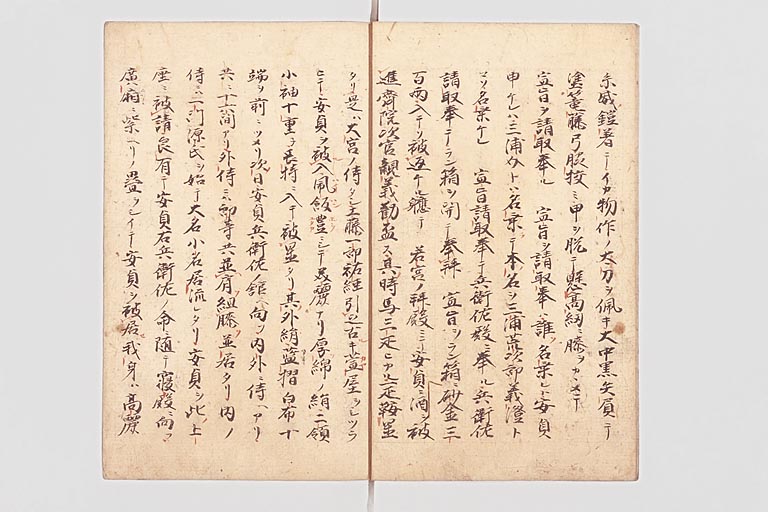 糸威鎧著テイカ物作ノ大刀ヲ佩キ大中黒矢負テ
塗籠藤弓脇挟ミ甲ヲ脱テ懸高紐膝ヲカヽメテ
宣旨ヲ請取奉ル 宣旨ヲ請取奉ハ誰ソ名乗レト安貞
申ケレハ三浦介トハ名乗テ本名ヲ三浦荒次郎義澄ト
ソ名乗ケレ 宣旨請取奉テ兵衛佐殿ニ奉ル兵衛佐
請取奉テラン箱ヲ開テ奉拝 宣旨ヲラン箱ニ砂金三
百両入テソ被返ケル 若宮ノ拝殿ニシテ安貞ニ酒ヲ被
進斎院次官親義勧盃ス其時馬三疋ニカ一疋鞍置
タリ是ハ大宮ノ侍タシ工藤一郎祐経引之古キ萱屋ヲシツラ
ヒテ安貞ヲ被入風飯豊ニシテ美麗アリ厚綿ノ絹二領
小袖十重ヲ長持ニ入テ被置タリ其外絹藍摺白布千
端ヲ前ニツメリ次日安貞兵衛佐ノ館ヘ向フ内外ニ侍ヘアリ
共ニ十六間アリ外侍ニハ郎等共並肩組膝並居タリ内ノ
侍ニハ一門源氏ヲ始テ大名小名居流レタリ安貞ヲ此ノ上
座ニ被請良有テ安貞右兵衛佐ノ命ニ随テ寝殿ニ向フ
廣廂ニ紫ヘリノ畳ヲシイテ安貞ヲ被居我身ハ高麗